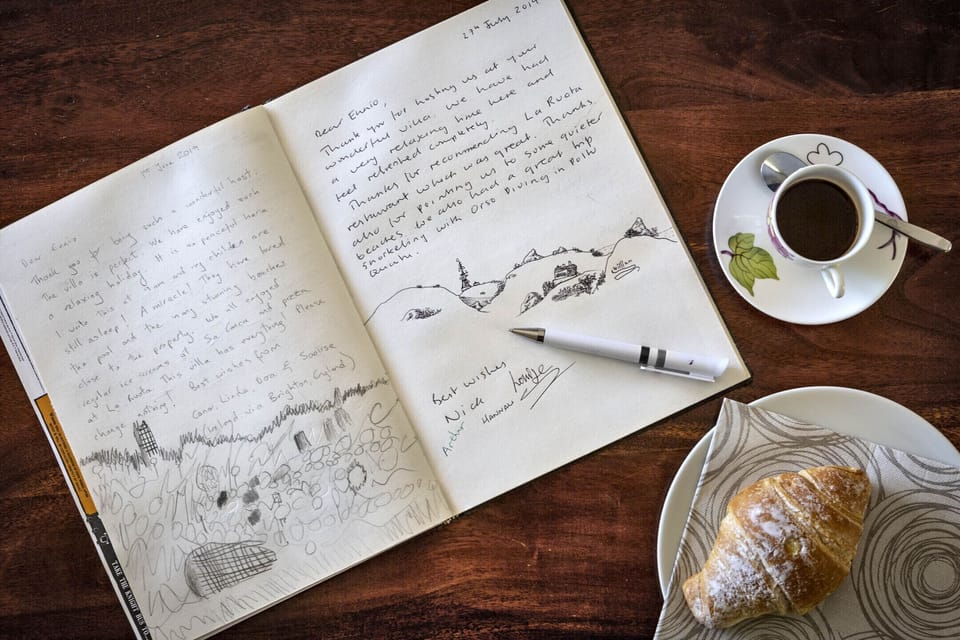 1st June 2019
Dear Ennio
Thank you for being such a wonderful host,
The villa is perfect. We have enjoyed such
a relaxing holiday. It is so peaceful here.
I write this at 9am and my children are
still asleep! A miracle! They have loved
the pool and the many stunning beaches
close to the property. We all enjoyed
regular ice creams at Sa and pizza
at La Ruota. This villa has everything. Please
change anything! Best wishes from
Linda, Dora &
(England via Brighton, England)
TAKE THE KNIGHT BUS TO
29th July 2019
Dear Ennio,
Thank you for hosting us at your
wonderful villa. We have had
a very relaxing time here and
feel refreshed completely.
Thanks for recommending La Ruota
restaurant which was great. Thanks
also for pointing us to some quieter
beaches. We also had a great trip
snorkeling with Orso Diving in Poltu
Quatu.
William
Best wishes
Nick
Hannah
Arthur